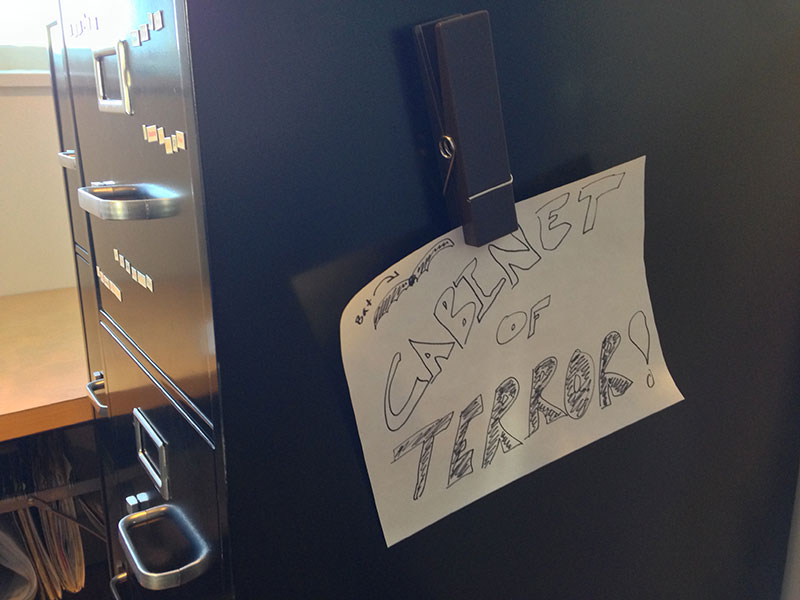 Bat
CABINET
OF
TERROR!